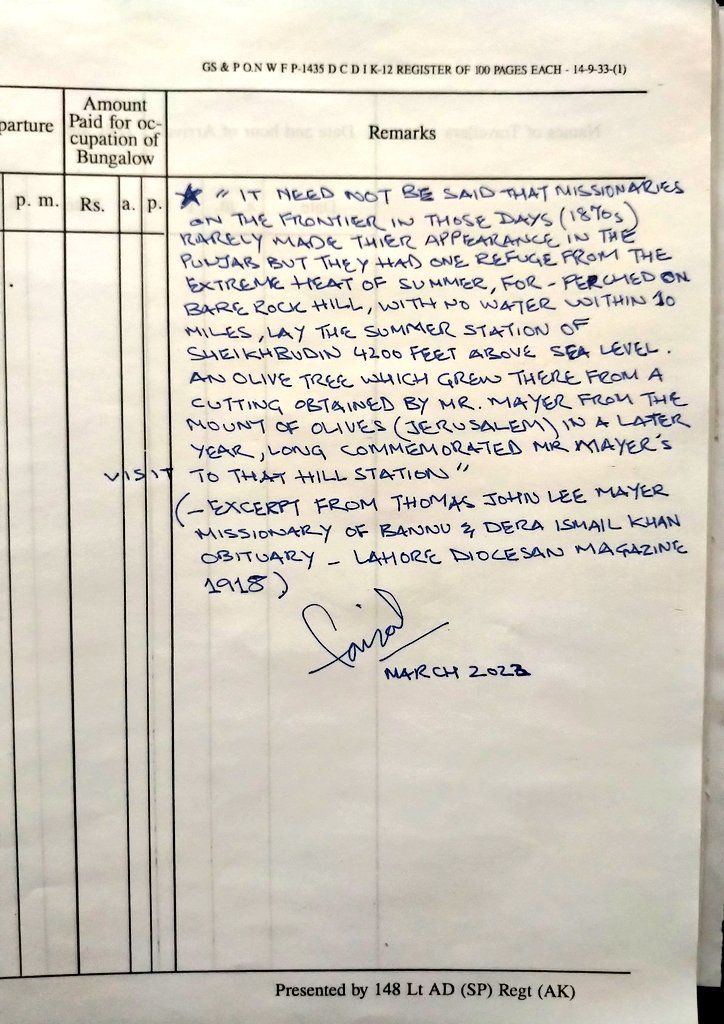 GS & P O.N W F P-1435 D C D I K-12 REGISTER OF 100 PAGES EACH - 14-9-33-(1)
parture
Amount
Paid for oc-
cupation of
Bungalow
Remarks
p. m.
Rs.
a.
p.
★ "IT NEED NOT BE SAID THAT MISSIONARIES
ON THE FRONTIER IN THOSE DAYS (1870s)
RARELY MADE THIER APPEARANCE IN THE
PUNJAB BUT THEY HAD ONE REFUGE FROM THE
EXTREME HEAT OF SUMMER, FOR - PERCHED ON
BARE ROCK HILL, WITH NO WATER WITHIN 10
MILES, LAY THE SUMMER STATION OF
SHEIKHBUDIN 4200 FEET ABOVE SEA LEVEL.
AN OLIVE TREE WHICH GREW THERE FROM A
CUTTING OBTAINED BY MR. MAYER FROM THE
MOUNT OF OLIVES (JERUSALEM) IN A LATER
YEAR, LONG COMMEMORATED MR MAYER'S
VISIT TO THAT HILL STATION"
(- EXCERPT FROM THOMAS JOHN LEE MAYER
MISSIONARY OF BANNU & DERA ISMAIL KHAN
OBITUARY - LAHORE DIOCESAN MAGAZINE
1918)
Faisal
MARCH 2023
Presented by 148 Lt AD (SP) Regt (AK)